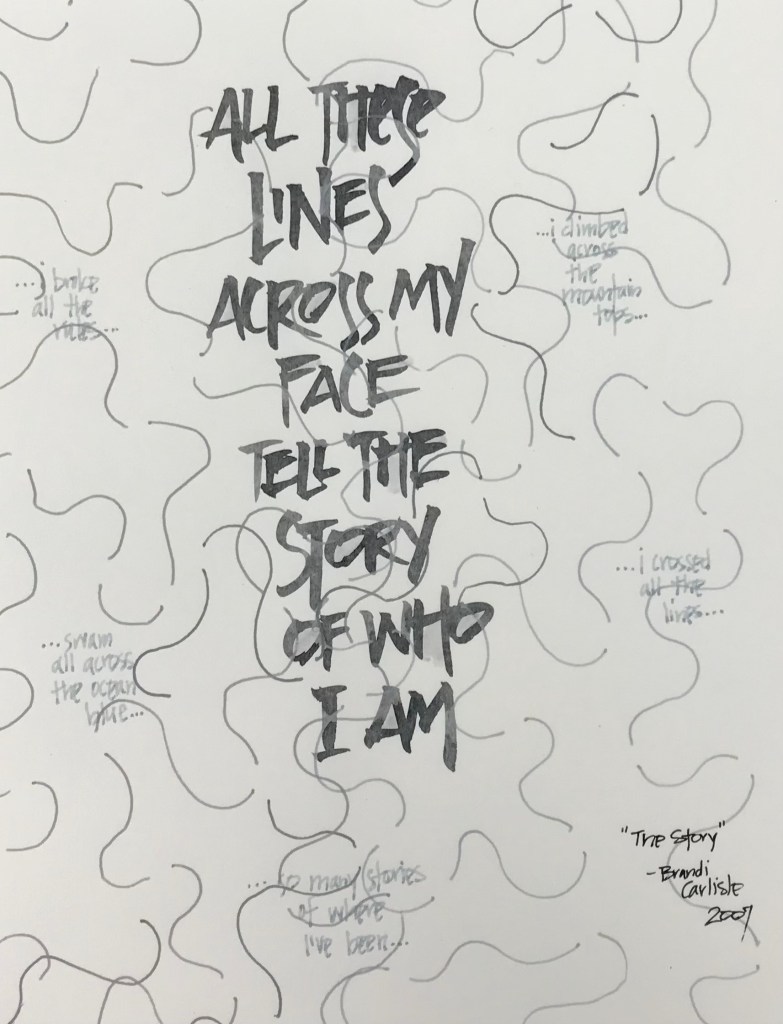 ALL THESE
LINES
ACROSS MY
FACE
TELL THE
STORY
OF WHO
I AM
...i climbed
across
the
mountain
tops...
...i broke
all the
rules...
...i crossed
all the
lines...
...swam
all across
the ocean
blue...
...so many stories
of where
i've been...
"The Story"
-Brandi
Carlisle
2007